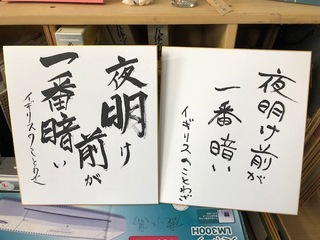 夜明け
前が
一番暗い
イギリスのことわざ
夜明け前が
一番暗い
イギリスのことわざ